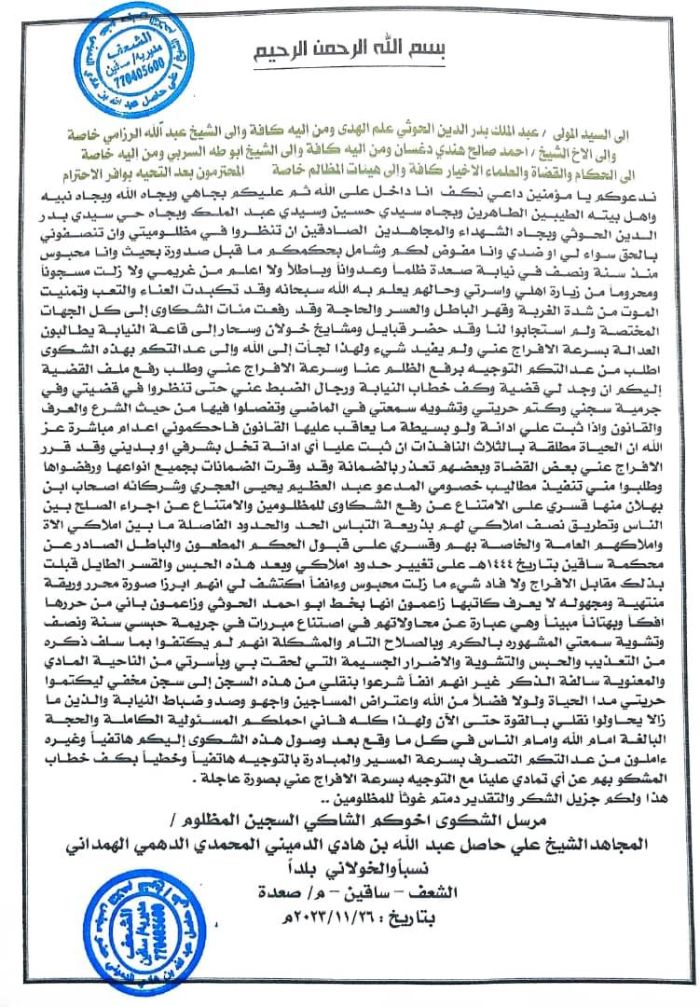 الشعف
مديرية/ ساقين
770405600
بسم الله الرحمن الرحيم
الى السيد المولى / عبد الملك بدر الدين الحوثي علم الهدى ومن اليه كافة والى الشيخ عبد الله الرزامي خاصة
والى الاخ الشيخ / احمد صالح هندي دغسان ومن اليه كافة والى الشيخ ابو طه السربي ومن اليه خاصة
الى الحكام والقضاة والعلماء الاخيار كافة والى هيئات المظالم خاصة المحترمون بعد التحيه بوافر الاحترام
ندعوكم يا مؤمنين داعي نكف انا داخل على الله ثم عليكم بجاهي وبجاه الله وبجاه نبيه
واهل بيته الطيبين الطاهرين وبجاه سيدي حسين وسيدي عبد الملك وبجاه حي سيدي بدر
الدين الحوثي وبجاه الشهداء والمجاهدين الصادقين ان تنظروا في مظلوميتي وان تنصفوني
بالحق سواء لي او ضدي وانا مفوض لكم وشامل بحكمكم ما قبل صدورة بحيث وانا محبوس
منذ سنة ونصف في نيابة صعدة ظلماً وعدواناً وباطلاً ولا اعلم من غريمي ولا زلت مسجوناً
ومحروماً من زيارة اهلي واسرتي وحالهم يعلم به الله سبحانه وقد تكبدت العناء والتعب وتمنيت
الموت من شدة الغربة وقهر الباطل والعسر والحاجة وقد رفعت مئات الشكاوى إلى كل الجهات
المختصة ولم استجابوا لنا وقد حضر قبايل ومشايخ خولان وسحار إلى قاعة النيابة يطالبون
العدالة بسرعة الافراج عني ولم يفيد شيء ولهذا لجأت إلى الله وإلى عدالتكم بهذه الشكوى
اطلب من عدالتكم التوجيه برفع الظلم عنا وسرعة الافراج عني وطلب رفع ملف القضية
إليكم ان وجد لي قضية وكف خطاب النيابة ورجال الضبط عني حتى تنظروا في قضيتي وفي
جرمية سجني وكتم حريتي وتشويه سمعتي في الماضي وتفصلوا فيها من حيث الشرع والعرف
والقانون واذا ثبت علي ادانة ولو بسيطة ما يعاقب عليها القانون فاحكموني اعدام مباشرة عز
الله ان الحياة مطلقة بالثلاث النافذات ان ثبت عليا أي ادانة تخل بشرفي او بديني وقد قرر
الافراج عني بعض القضاة وبعضهم تعذر بالضمانة وقد وقرت الضمانات بجميع انواعها ورفضوها
وطلبوا مني تنفيذ مطاليب خصومي المدعو عبد العظيم يحيى العجري وشركائه اصحاب ابن
بهلان منها قسري على الامتناع عن رفع الشكاوى للمظلومين والامتناع عن اجراء الصلح بين
الناس وتطريق نصف املاكي لهم بذريعة التباس الحد والحدود الفاصلة ما بين املاكي الاة
واملاكهم العامة والخاصة بهم وقسري على قبول الحكم المطعون والباطل الصادر عن
محكمة ساقين بتاريخ ١٤٤٤هـ على تغيير حدود املاكي وبعد هذه الحبس والقسر الطايل قبلت
بذلك مقابل الافراج ولا فاد شيء ما زلت محبوس وءانفاً اكتشف لي انهم ابرزا صورة محرر وريقة
منتهية ومجهوله لا يعرف كاتبها زاعمون انها بخط ابو احمد الحوثي وزاعمون باني من حررها
افكا وبهتاناً مبيناً وهي عبارة عن محاولاتهم في اصتناع مبررات في جريمة حبسي سنة ونصف
وتشوية سمعتي المشهوره بالكرم وبالصلاح التام والمشكلة انهم لم يكتفوا بما سلف ذكره
من التعذيب والحبس والتشوية والاضرار الجسيمة التي لحقت بي وبأسرتي من الناحية المادي
والمعنوية سالفة الذكر غير انهم انفاً شرعوا بنقلي من هذه السجن إلى سجن مخفي ليكتموا
حريتي مدا الحياة ولولا فضلاً من الله واعتراض المساجين واجهو وصدو ضباط النيابة والذين ما
زالا يحاولوا نقلي بالقوة حتى الآن ولهذا كله فاني احملكم المسئولية الكاملة والحجة
البالغة امام الله وامام الناس في كل ما وقع بعد وصول هذه الشكوى إليكم هاتفياً وغيره
ءاملون من عدالتكم التصرف بسرعة المسير والمبادرة بالتوجيه هاتفياً وخطياً بكف خطاب
المشكو بهم عن أي تمادي علينا مع التوجيه بسرعة الافراج عني بصورة عاجلة .
هذا ولكم جزيل الشكر والتقدير دمتم غوثاً للمظلومين ..
مرسل الشكوى اخوكم الشاكي السجين المظلوم /
المجاهد الشيخ علي حاصل عبد الله بن هادي الدميني المحمدي الدهمي الهمداني
نسباً والخولاني بلداً
الشعف – ساقين – م/ صعدة
بتاريخ : ٢٠٢٣/١١/٢٦م
الشعف
مديرية/ ساقين
770405600